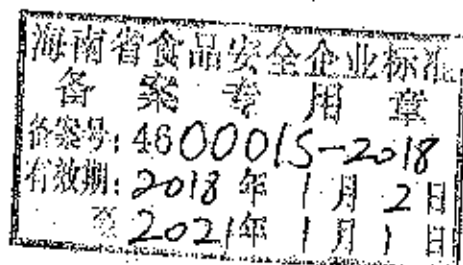 海南省食品安全企业标准
备案专用章
备案号：4600015-2018
有效期：2018年1月2日
至2021年1月1日